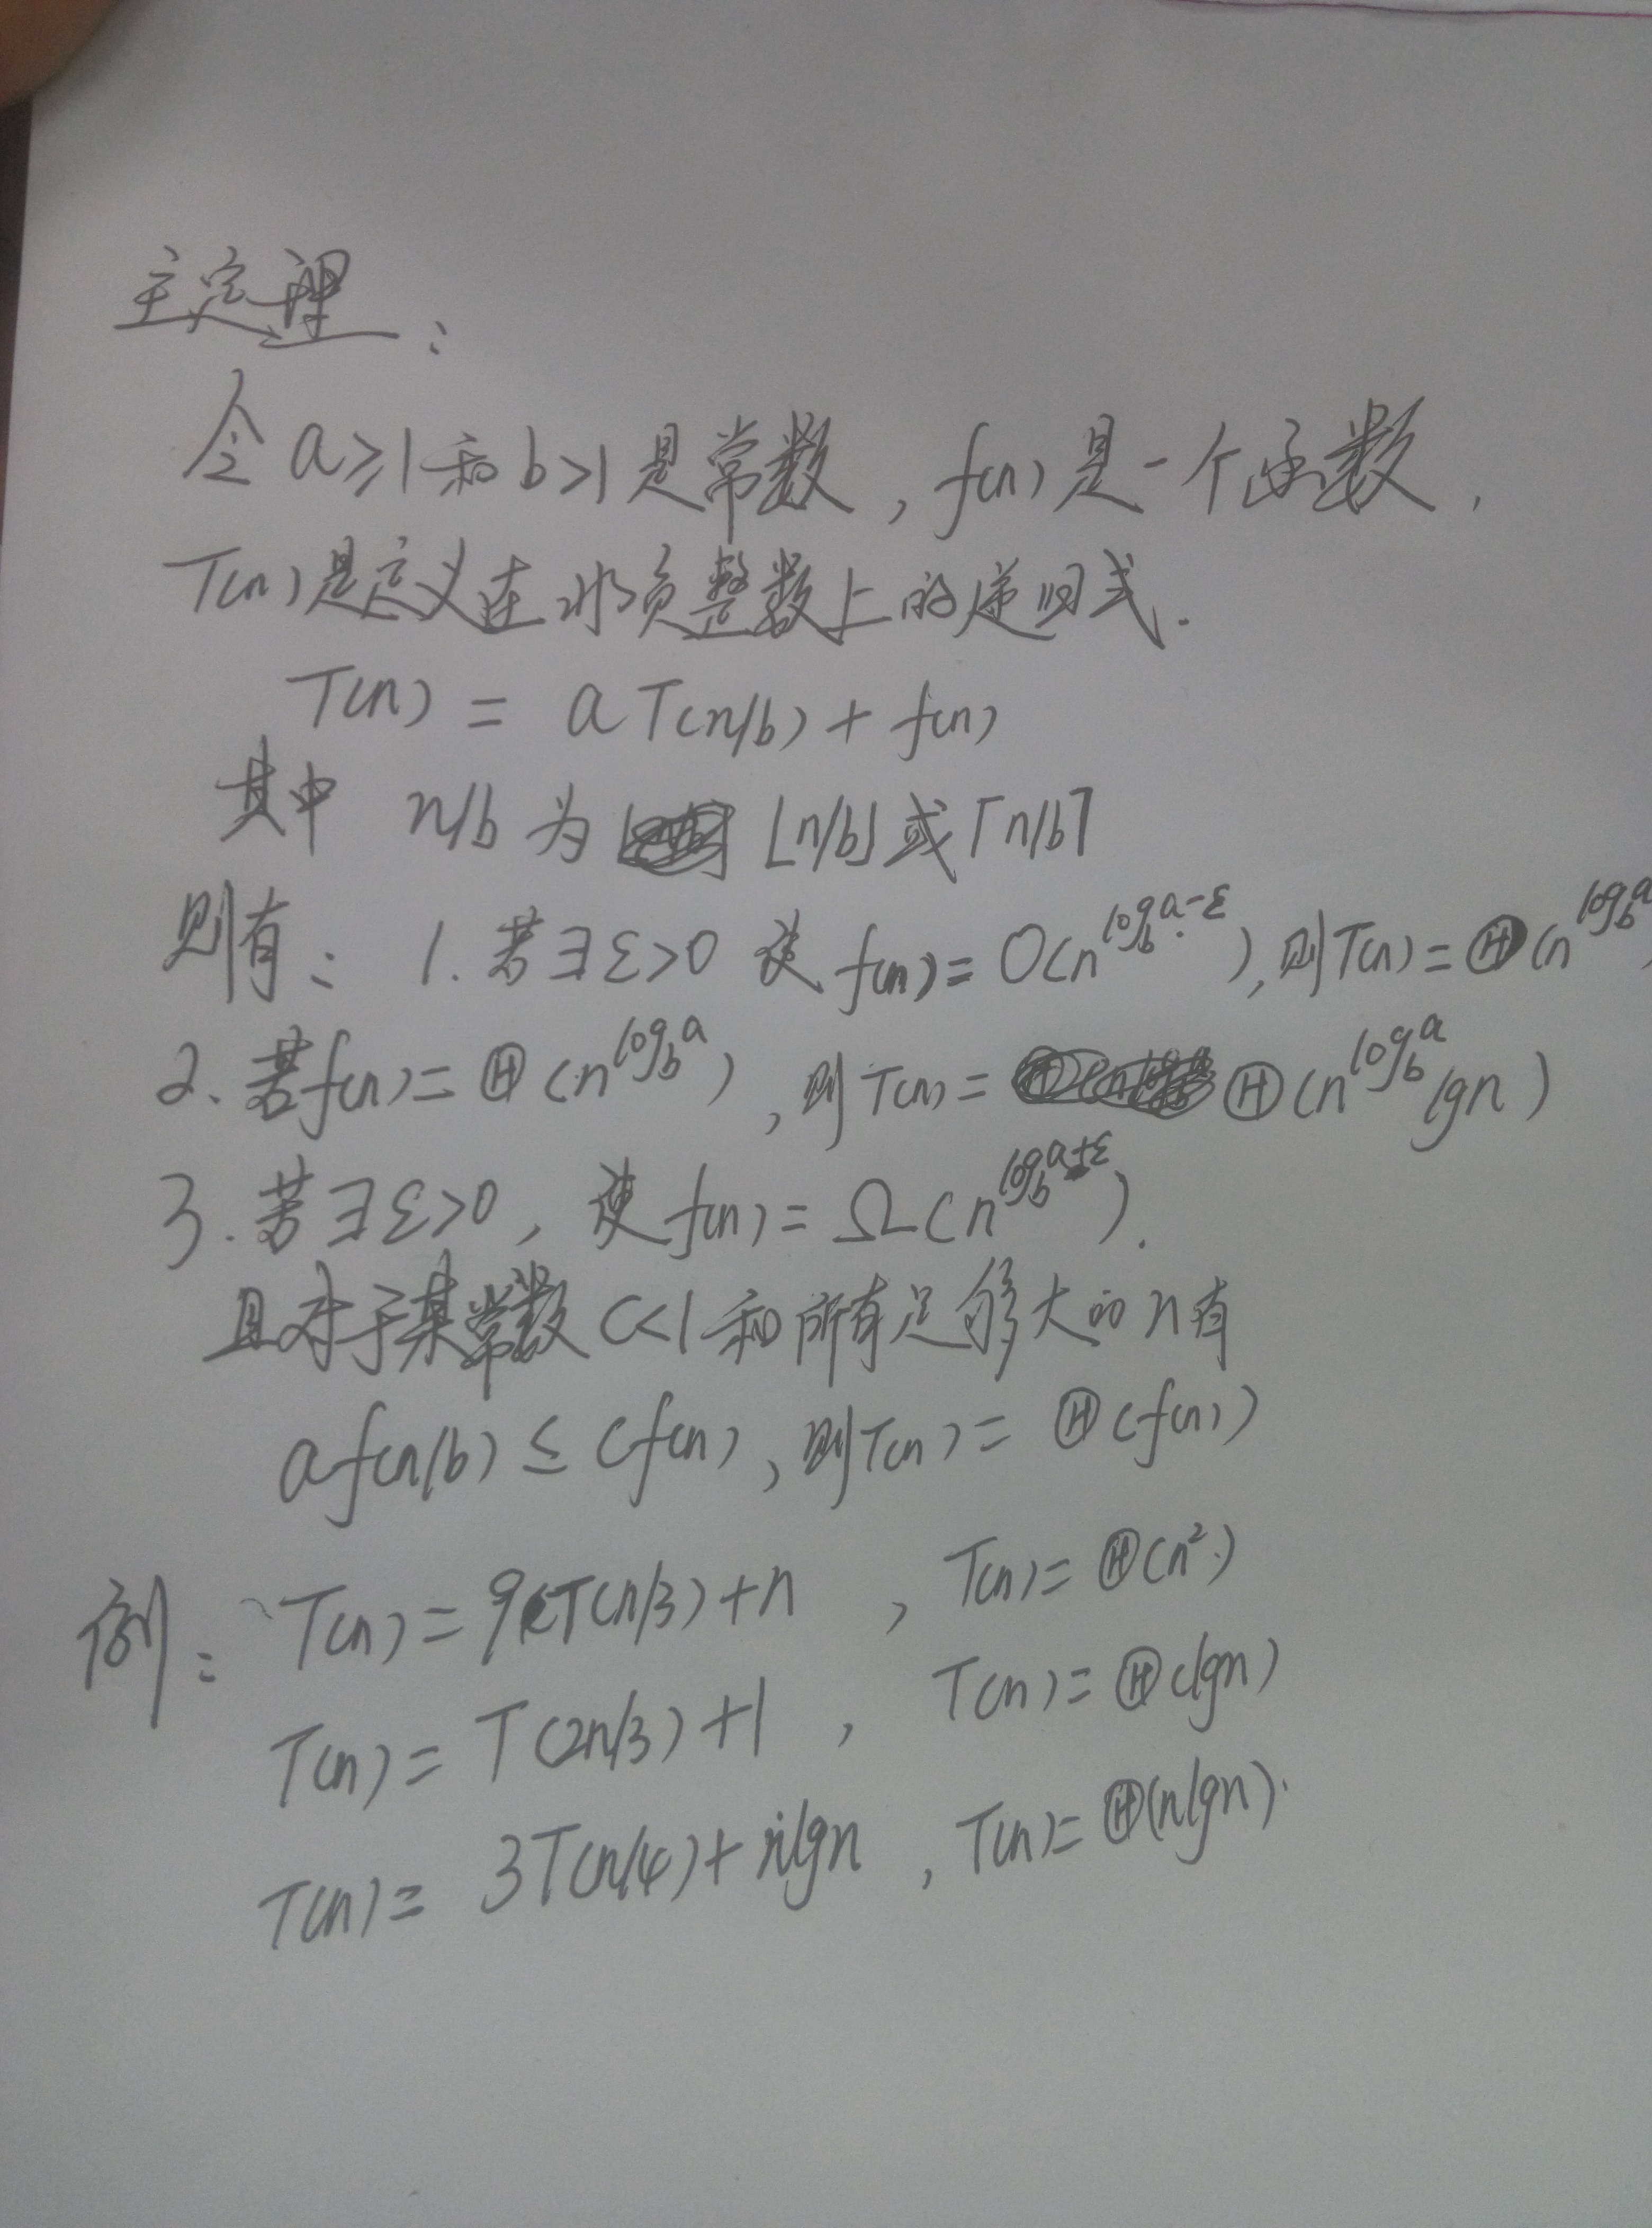 主定理：
令 a≥1 和 b>1 是常数，f(n) 是一个函数，
T(n) 是定义在非负整数上的递归式．
T(n) = aT(n/b) + f(n)
其中 n/b 为 ⌊n/b⌋ 或 ⌈n/b⌉
则有： 1. 若∃ε>0 使 f(n) = O(n^{log_b a-ε}), 则 T(n) = Θ(n^{log_b a}
2. 若 f(n) = Θ(n^{log_b a}), 则 T(n) = Θ(n^{log_b a} lgn)
3. 若∃ε>0, 使 f(n) = Ω(n^{log_b a+ε}).
且对于某常数 c<1 和所有足够大的 n 有
af(n/b) ≤ cf(n), 则 T(n) = Θ(f(n))
例： T(n) = 9T(n/3)+n , T(n) = Θ(n²)
T(n) = T(2n/3)+1 , T(n) = Θ(lgn)
T(n) = 3T(n/4)+nlgn , T(n) = Θ(nlgn).